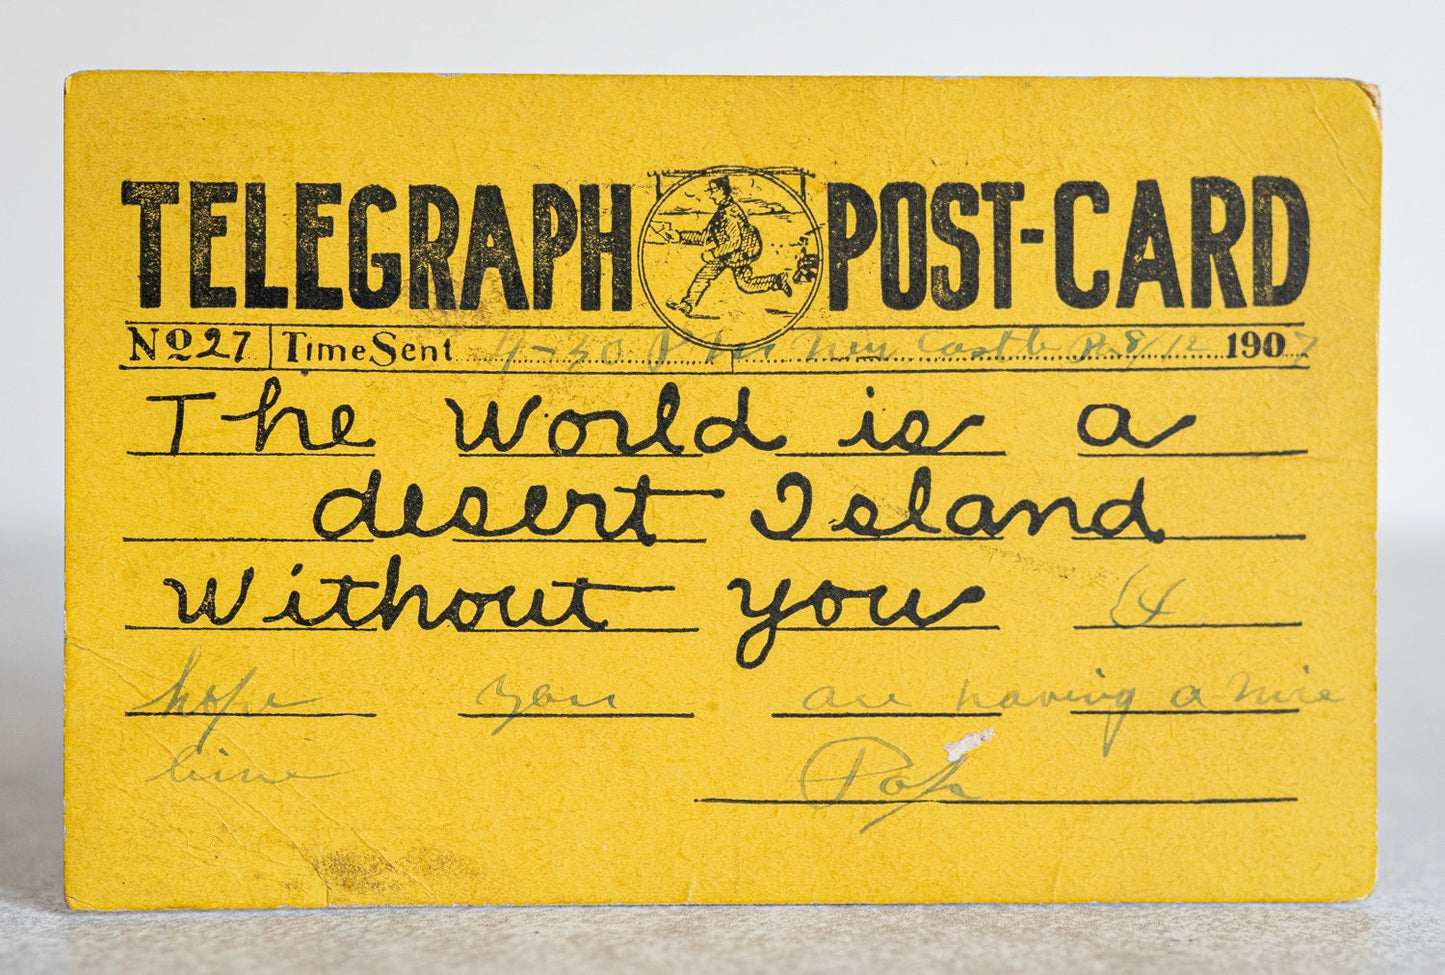 TELEGRAPH POST-CARD
No 27 Time Sent 4-30 PM New Castle Pa 8/12 1907
The World is a
desert Island
Without you
hope you are having a nice
time
Pop